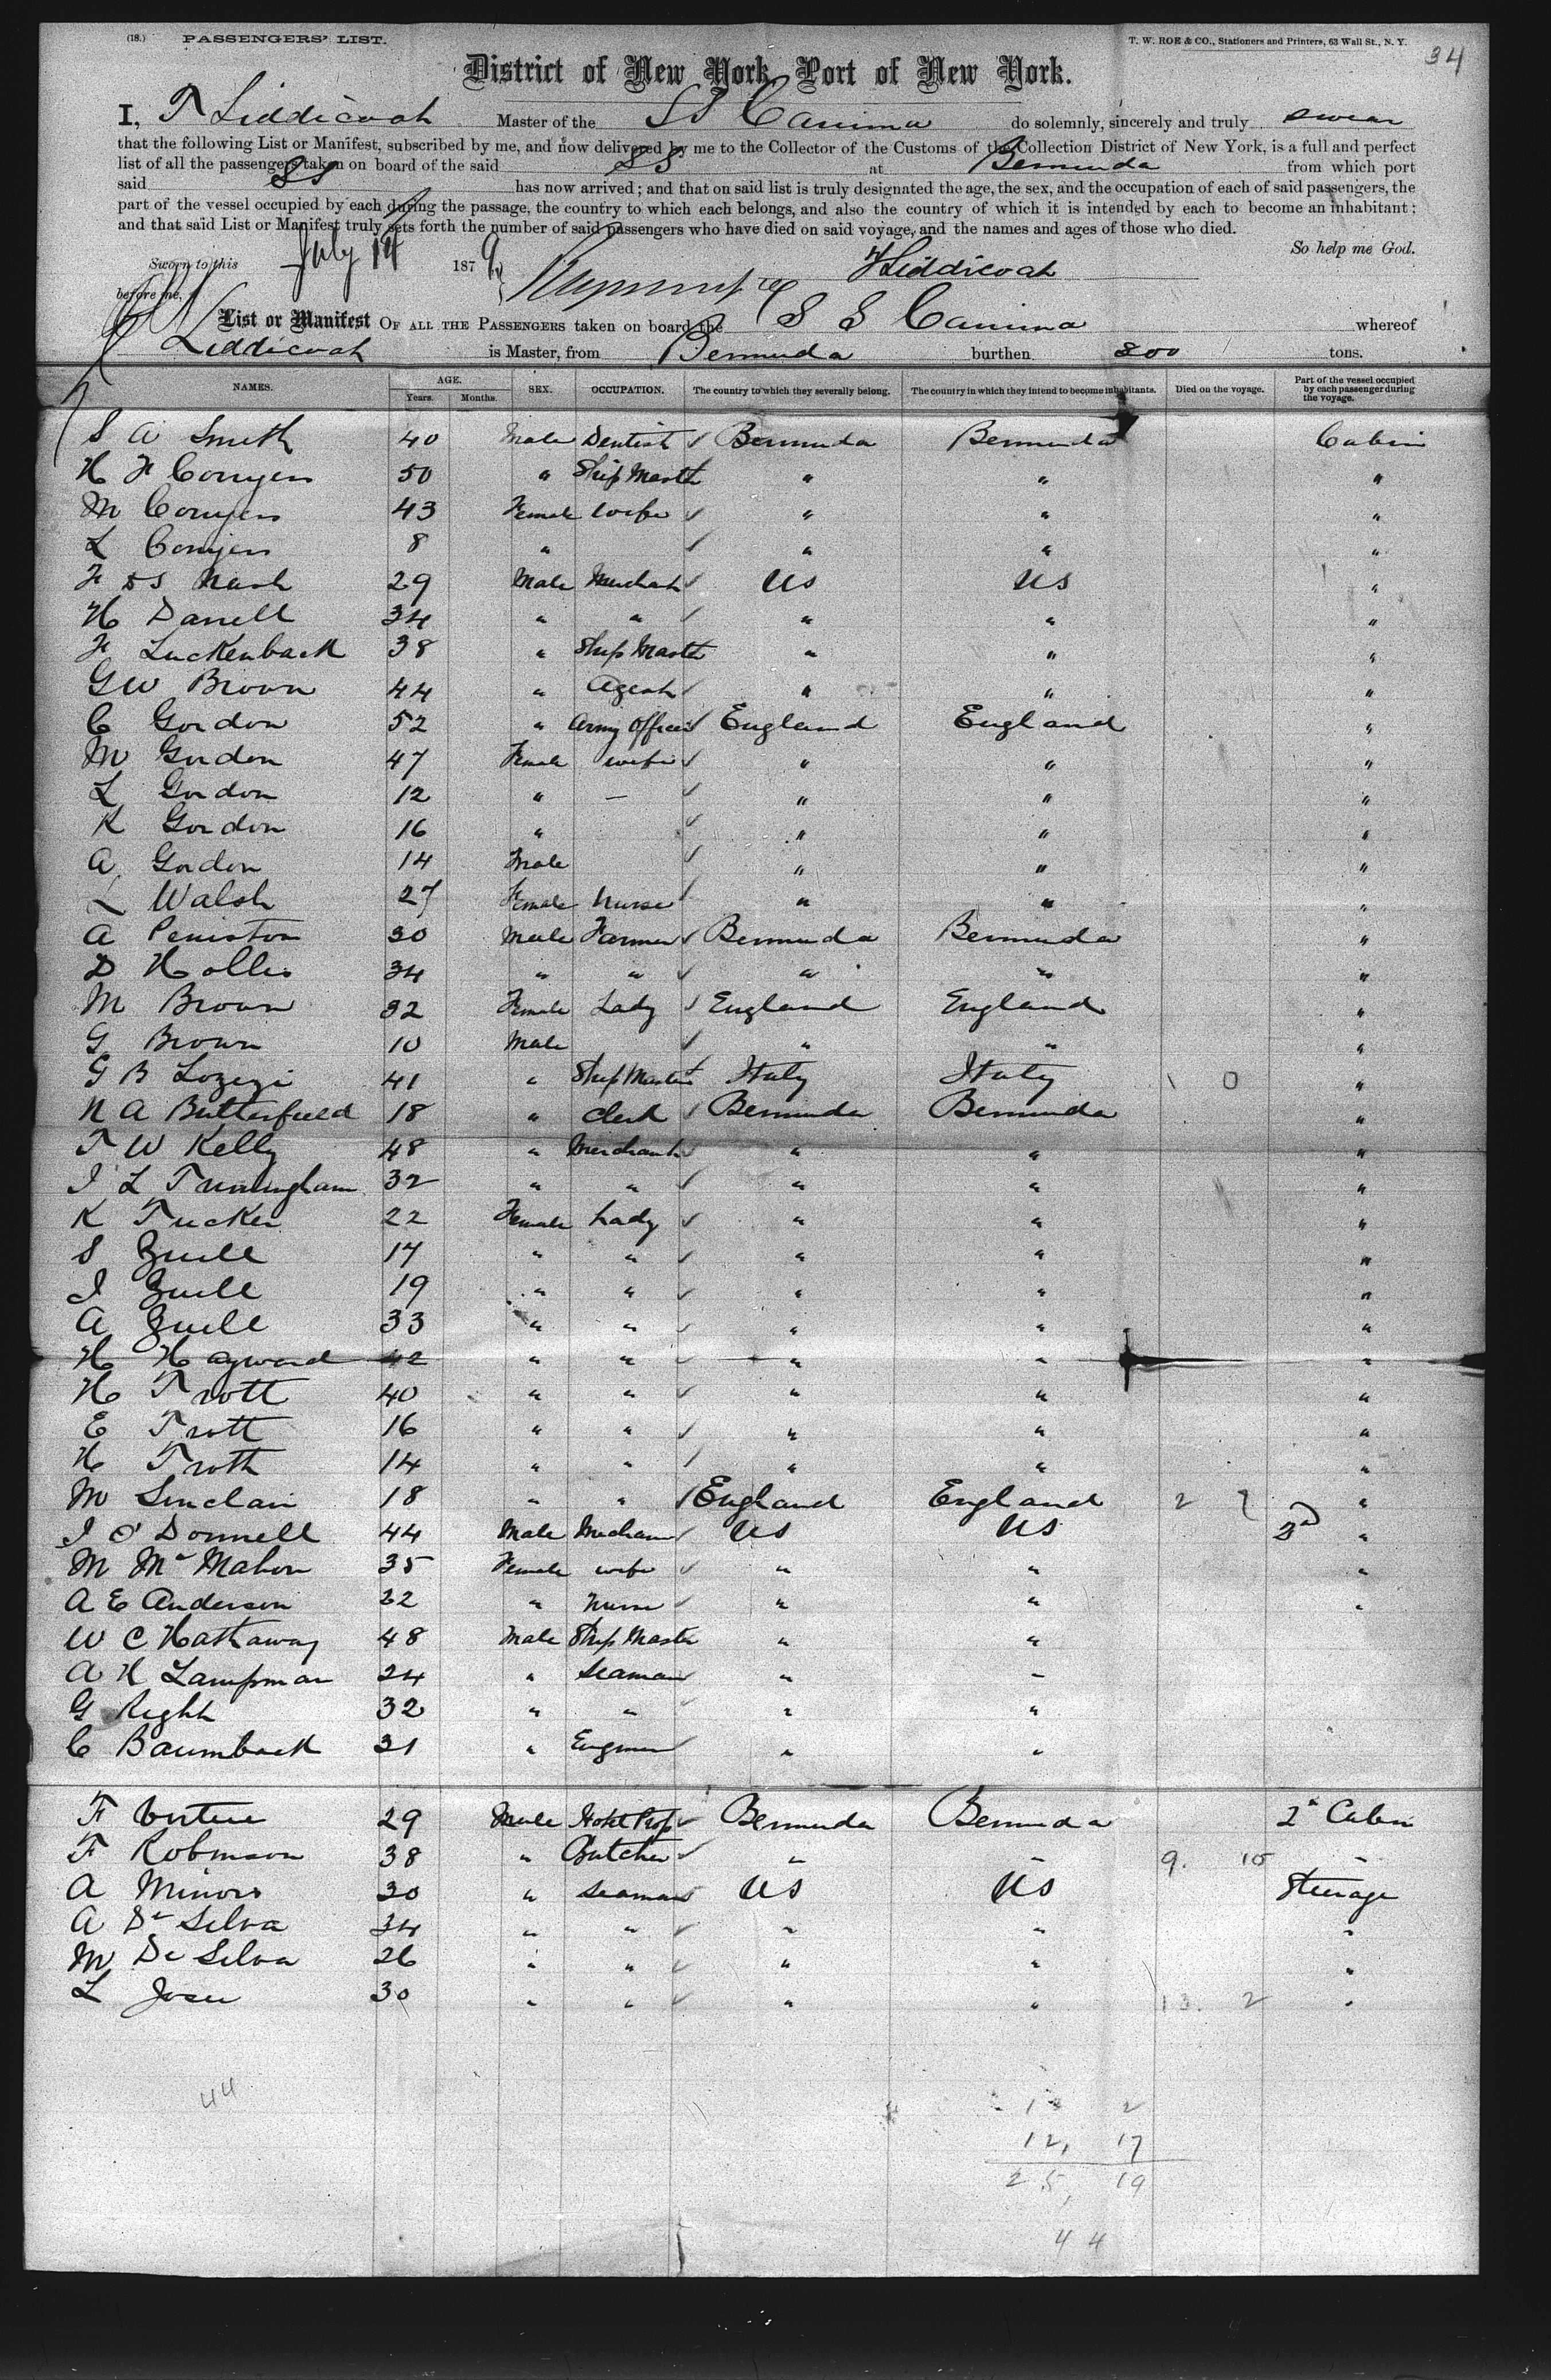 (18.) PASSENGERS' LIST. T. W. ROE & CO., Stationers and Printers, 63 Wall St., N. Y. 34
District of New York, Port of New York.
I, T Liddicoat Master of the SS Canima do solemnly, sincerely and truly swear
that the following List or Manifest, subscribed by me, and now delivered by me to the Collector of the Customs of the Collection District of New York, is a full and perfect
list of all the passengers taken on board of the said SS at Bermuda from which port
said SS has now arrived; and that on said list is truly designated the age, the sex, and the occupation of each of said passengers, the
part of the vessel occupied by each during the passage, the country to which each belongs, and also the country of which it is intended by each to become an inhabitant;
and that said List or Manifest truly sets forth the number of said passengers who have died on said voyage, and the names and ages of those who died.
So help me God.
Sworn to this July 14 1879 T Liddicoat
before me,
List or Manifest OF ALL THE PASSENGERS taken on board the S S Canima whereof
Liddicoat is Master, from Bermuda burthen 800 tons.
NAMES. AGE. Years. Months. SEX. OCCUPATION. The country to which they severally belong. The country in which they intend to become inhabitants. Died on the voyage. Part of the vessel occupied by each passenger during the voyage.
S A Smith 40 Male Dentist ✓ Bermuda Bermuda Cabin
H F Conyers 50 " Ship Master " " "
M Conyers 43 Female Wife ✓ " " "
L Conyers 8 " ✓ " " "
F S Nash 29 Male Merchant ✓ US US "
H Darrell 34 " " ✓ " " "
F Luckenback 38 " Ship Master " " "
G W Brown 44 " Agent ✓ " " "
C Gordon 52 " Army Officer ✓ England England "
M Gordon 47 Female wife ✓ " " "
L Gordon 12 " — ✓ " " "
K Gordon 16 " ✓ " " "
A Gordon 14 Male ✓ " " "
L Walsh 27 Female Nurse ✓ " " "
A Peniston 30 Male Farmer ✓ Bermuda Bermuda "
D Hollis 34 " " ✓ " " "
M Brown 32 Female Lady ✓ England England "
G Brown 10 Male ✓ " " "
G B Lozigi 41 " Ship Master Italy Italy 1 0 "
N A Butterfield 18 " Clerk ✓ Bermuda Bermuda "
T W Kelly 48 " Merchant ✓ " " "
J L Trimingham 32 " " ✓ " " "
K Tucker 22 Female Lady ✓ " " "
S Zuill 17 " " ✓ " " "
J Zuill 19 " " ✓ " " "
A Zuill 33 " " ✓ " " "
H Hayward 42 " " ✓ " " "
H Trott 40 " " ✓ " " "
E Trott 16 " " ✓ " " "
H Trott 14 " " ✓ " " "
M Sinclair 18 " " ✓ England England 2 7 "
J O'Donnell 44 Male ✓ US US 2d "
M McMahon 35 Female wife ✓ " " "
A E Anderson 22 " Nurse ✓ " " "
W C Hathaway 48 Male Ship Master " "
A H Lampman 24 " Seaman " "
G Right 32 " " ✓ " "
C Baumback 31 " Engineer " "
F Virtue 29 Male Hotel Prop ✓ Bermuda Bermuda 2d Cabin
F Robinson 38 " Butcher ✓ " " 9. 10 "
A Minors 30 " Seaman US US Steerage
A De Silva 34 " " ✓ " " "
M De Silva 26 " " ✓ " " "
L Jose 30 " " ✓ " " 13. 2 "
44
13 2
12, 17
25, 19
44